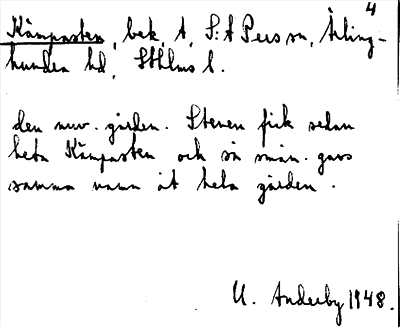 4
Kämpasten, bek, A, S:t Pers sn, Ärling-
hundra hd, Sthlms l.
den nuv. gården. Stenen fick sedan
heta Kämpasten och så små n. gavs
samma namn åt hela gården.
U. Anderby 1948.